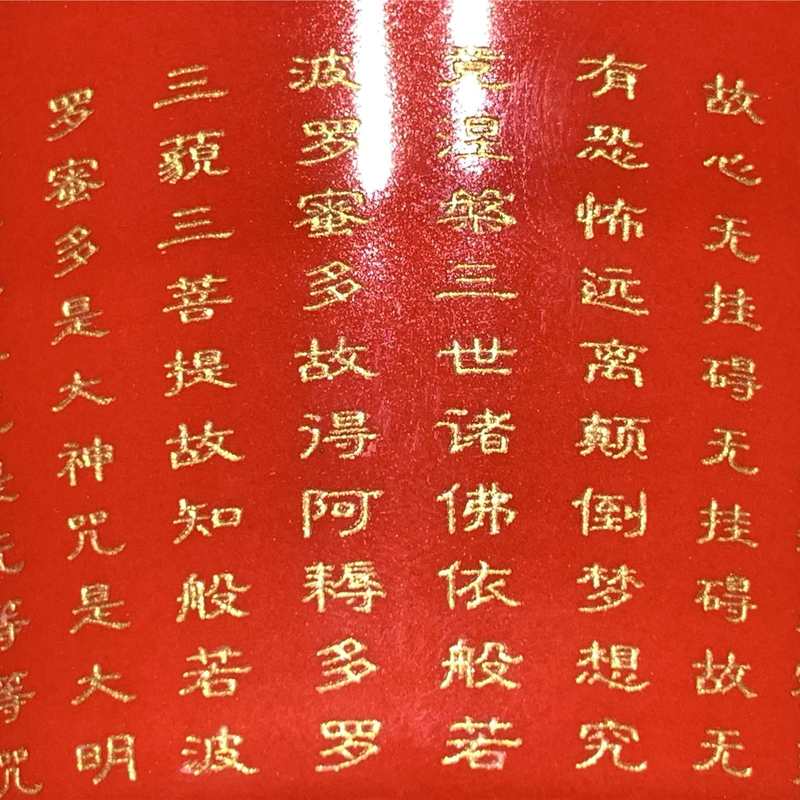 故心无挂碍无挂碍故无
有恐怖远离颠倒梦想究
竟涅槃三世诸佛依般若
波罗蜜多故得阿耨多罗
三藐三菩提故知般若波
罗蜜多是大神咒是大明
等等咒